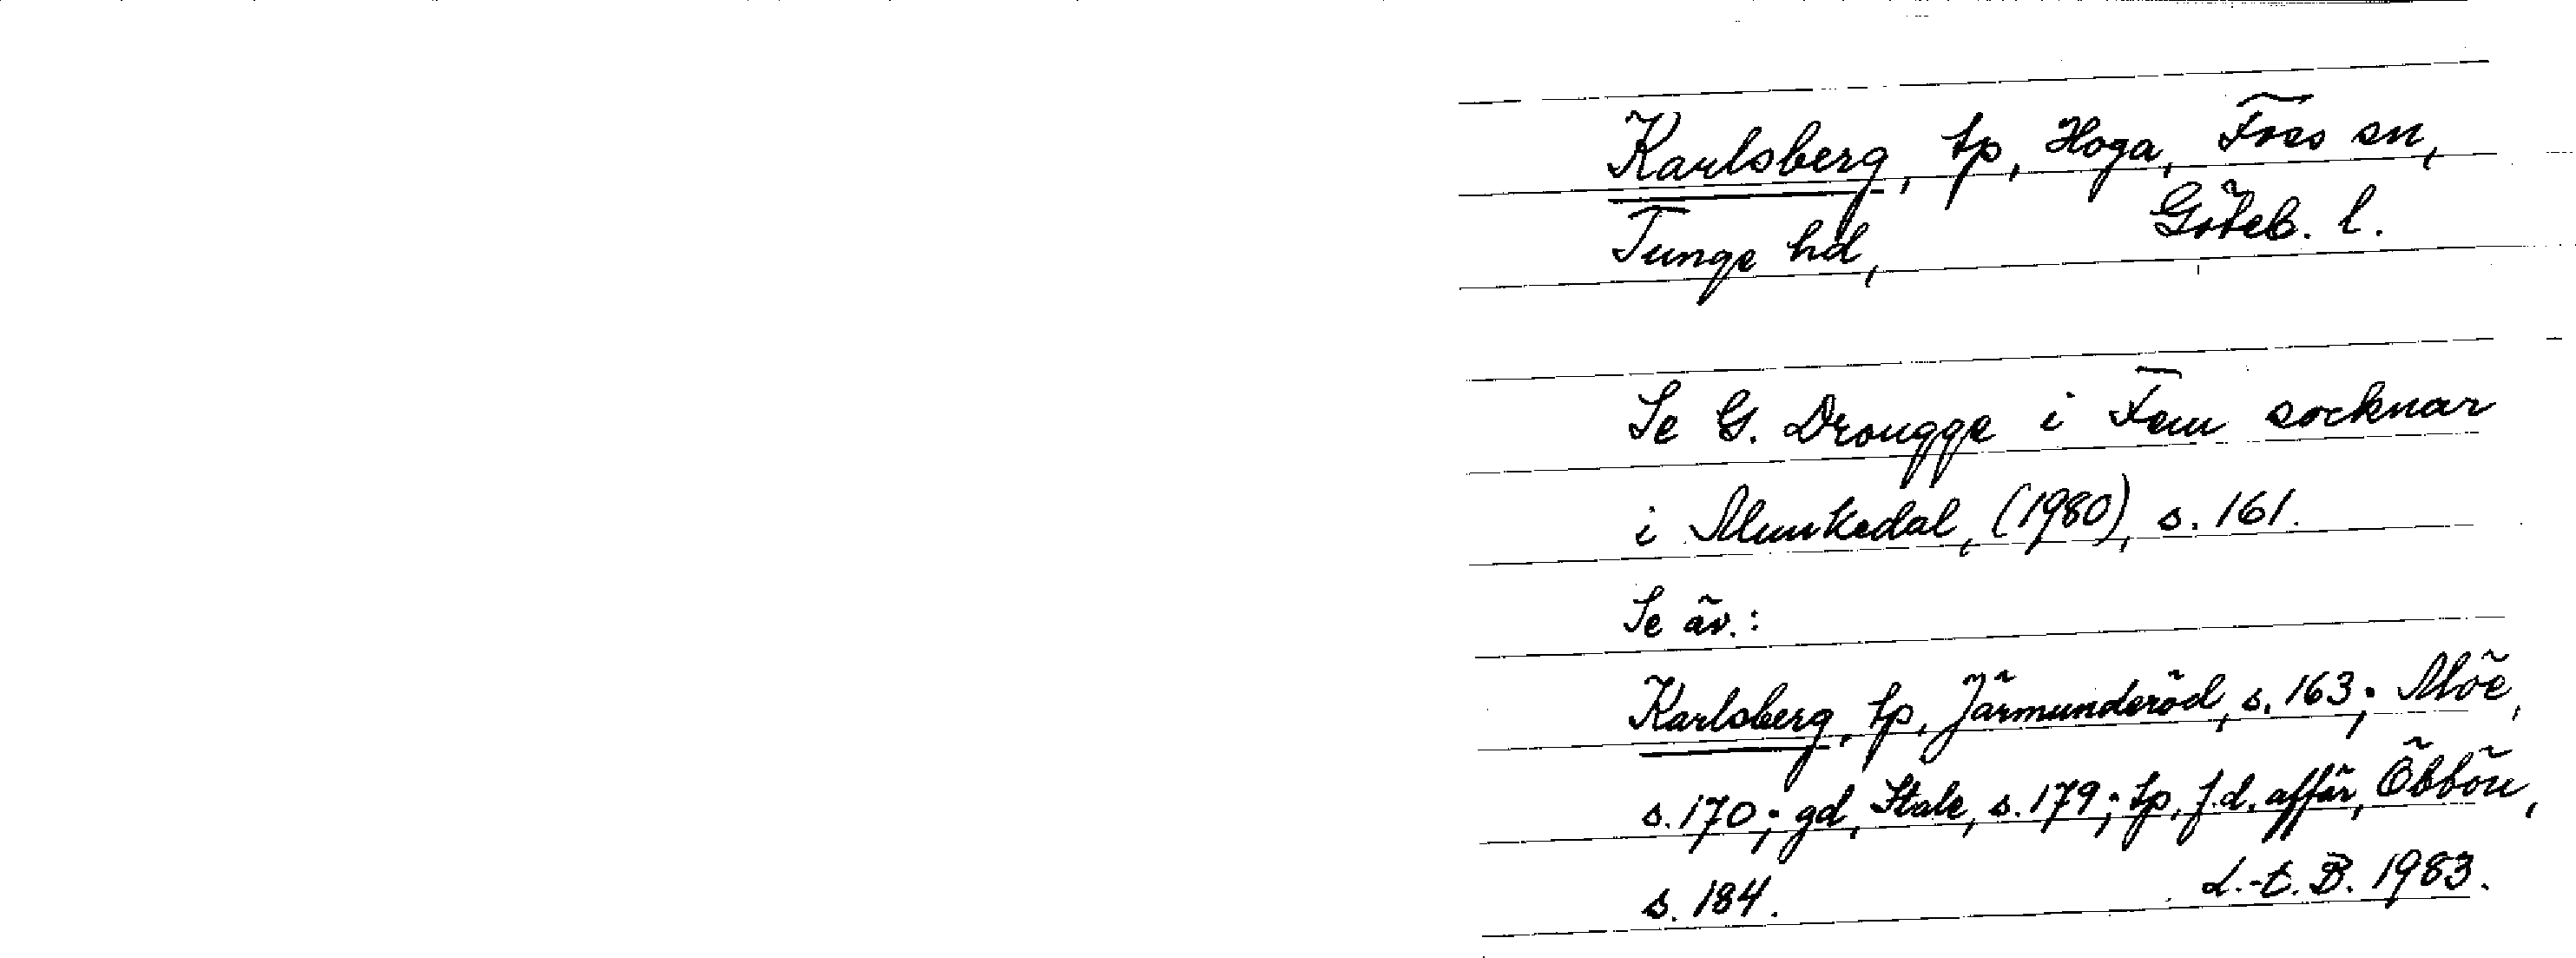 Karlsberg, tp, Hoga, Foss sn,
Tunge hd, Göteb. l.
Se G. Drougge i Fem socknar
i Munkedal, (1980), s. 161.
Se äv.:
Karlsberg, tp, Järmunderöd, s. 163; Möe,
s. 170; gd, Stale, s. 179; tp, f.d. affär, Öbbön,
s. 184. L.-E. B. 1983.